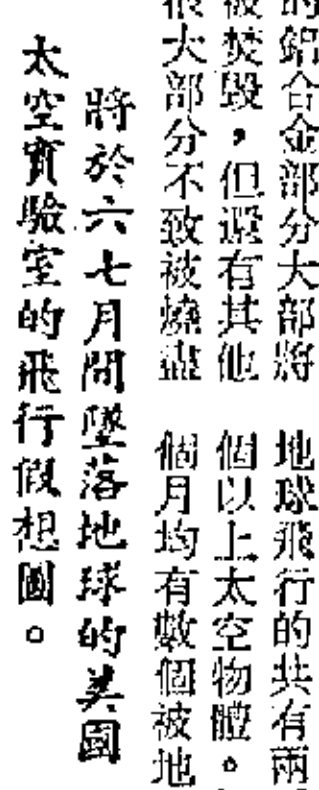 的鋁合金部分大部將
被焚毀，但還有其他
很大部分不致被燒盡
地球飛行的共有兩
個以上太空物體。
個月均有數個被地
將於六七月間墜落地球的美國
太空實驗室的飛行假想圖。